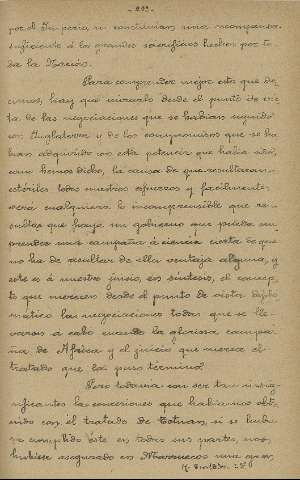 por el Imperio, ni constituian una recompensa
suficiente á los grandes sacrificios hechos por to-
da la Nación.
Para comprender mejor esto que de-
cimos, hay que mirarlo desde el punto de vis-
ta de las negociaciones que se habian seguido
con Inglaterra y de los compromisos que se ha-
bian adquirido con esta potencia que habia sido,
como hemos dicho, la causa de que resultaran
estériles todos nuestros esfuerzos y facilmente
verá cualquiera lo incomprensible que re-
sulta que haya un gobierno que pueda em-
prender una campaña á ciencia cierta de que
no ha de resultar de ella ventaja alguna, y
este es á nuestro juicio, en síntesis, el concep-
to que merecen desde el punto de vista diplo-
mático las negociaciones todas que se lle-
varon á cabo cuando la gloriosa campa-
ña de Africa y el juicio que merece el
tratado que la puso termino.
Pero todavia con ser tan insig-
nificantes las concesiones que habiamos obte-
nido con el tratado de Tetuan, si se hubie-
ra cumplido éste en todas sus partes, nos
hubiese asegurado en Marruecos una gran